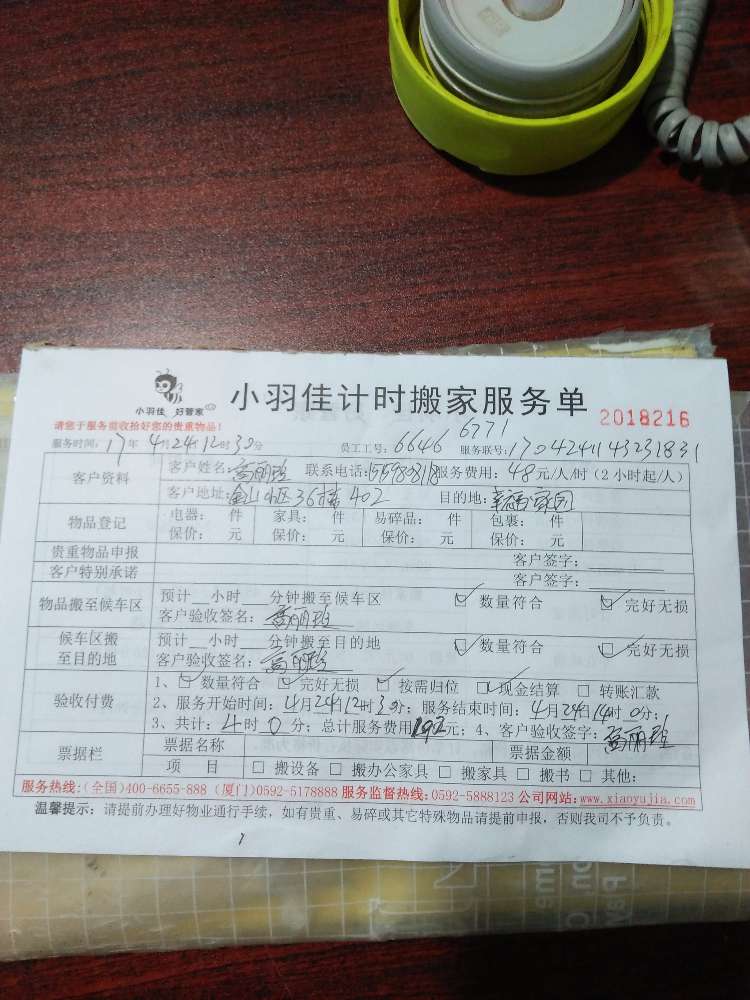 小羽佳 好管家
小羽佳计时搬家服务单 2018216
请您于服务前收拾好您的贵重物品!
服务时间: 17 年 4 月 24 日 12 时 30 分 员工工号: 6646 6771 服务联号: 1704241143231831
客户资料 客户姓名: 高丽 联系电话: 服务费用: 48 元/人/时 (2 小时起/人)
客户地址: 金山小区36栋402 目的地: 幸福家园
物品登记 电器: 件 家具: 件 易碎品: 件 包裹: 件
保价: 元 保价: 元 保价: 元 保价: 元
贵重物品申报 客户签字:
客户特别承诺 客户签字:
物品搬至候车区 预计__小时__分钟搬至候车区 ☑ 数量符合 ☑ 完好无损
客户验收签名: 高丽
候车区搬至目的地 预计__小时__分钟搬至目的地 ☑ 数量符合 ☑ 完好无损
客户验收签名: 高丽
验收付费 1、☑ 数量符合 ☑ 完好无损 ☑ 按需归位 ☑ 现金结算 □ 转账汇款
2、服务开始时间: 4月24日12时30分; 服务结束时间: 4月24日14时0分;
3、共计: 4 时 0 分; 总计服务费用 192 元; 4、客户验收签字: 高丽
票据栏 票据名称 票据金额
项 目 □ 搬设备 □ 搬办公家具 □ 搬家具 □ 搬书 □ 其他:
服务热线: (全国)400-6655-888 (厦门)0592-5178888 服务监督热线: 0592-5888123 公司网站: www.xiaoyujia.com
温馨提示: 请提前办理好物业通行手续, 如有贵重、易碎或其它特殊物品请提前申报, 否则我司不予负责。